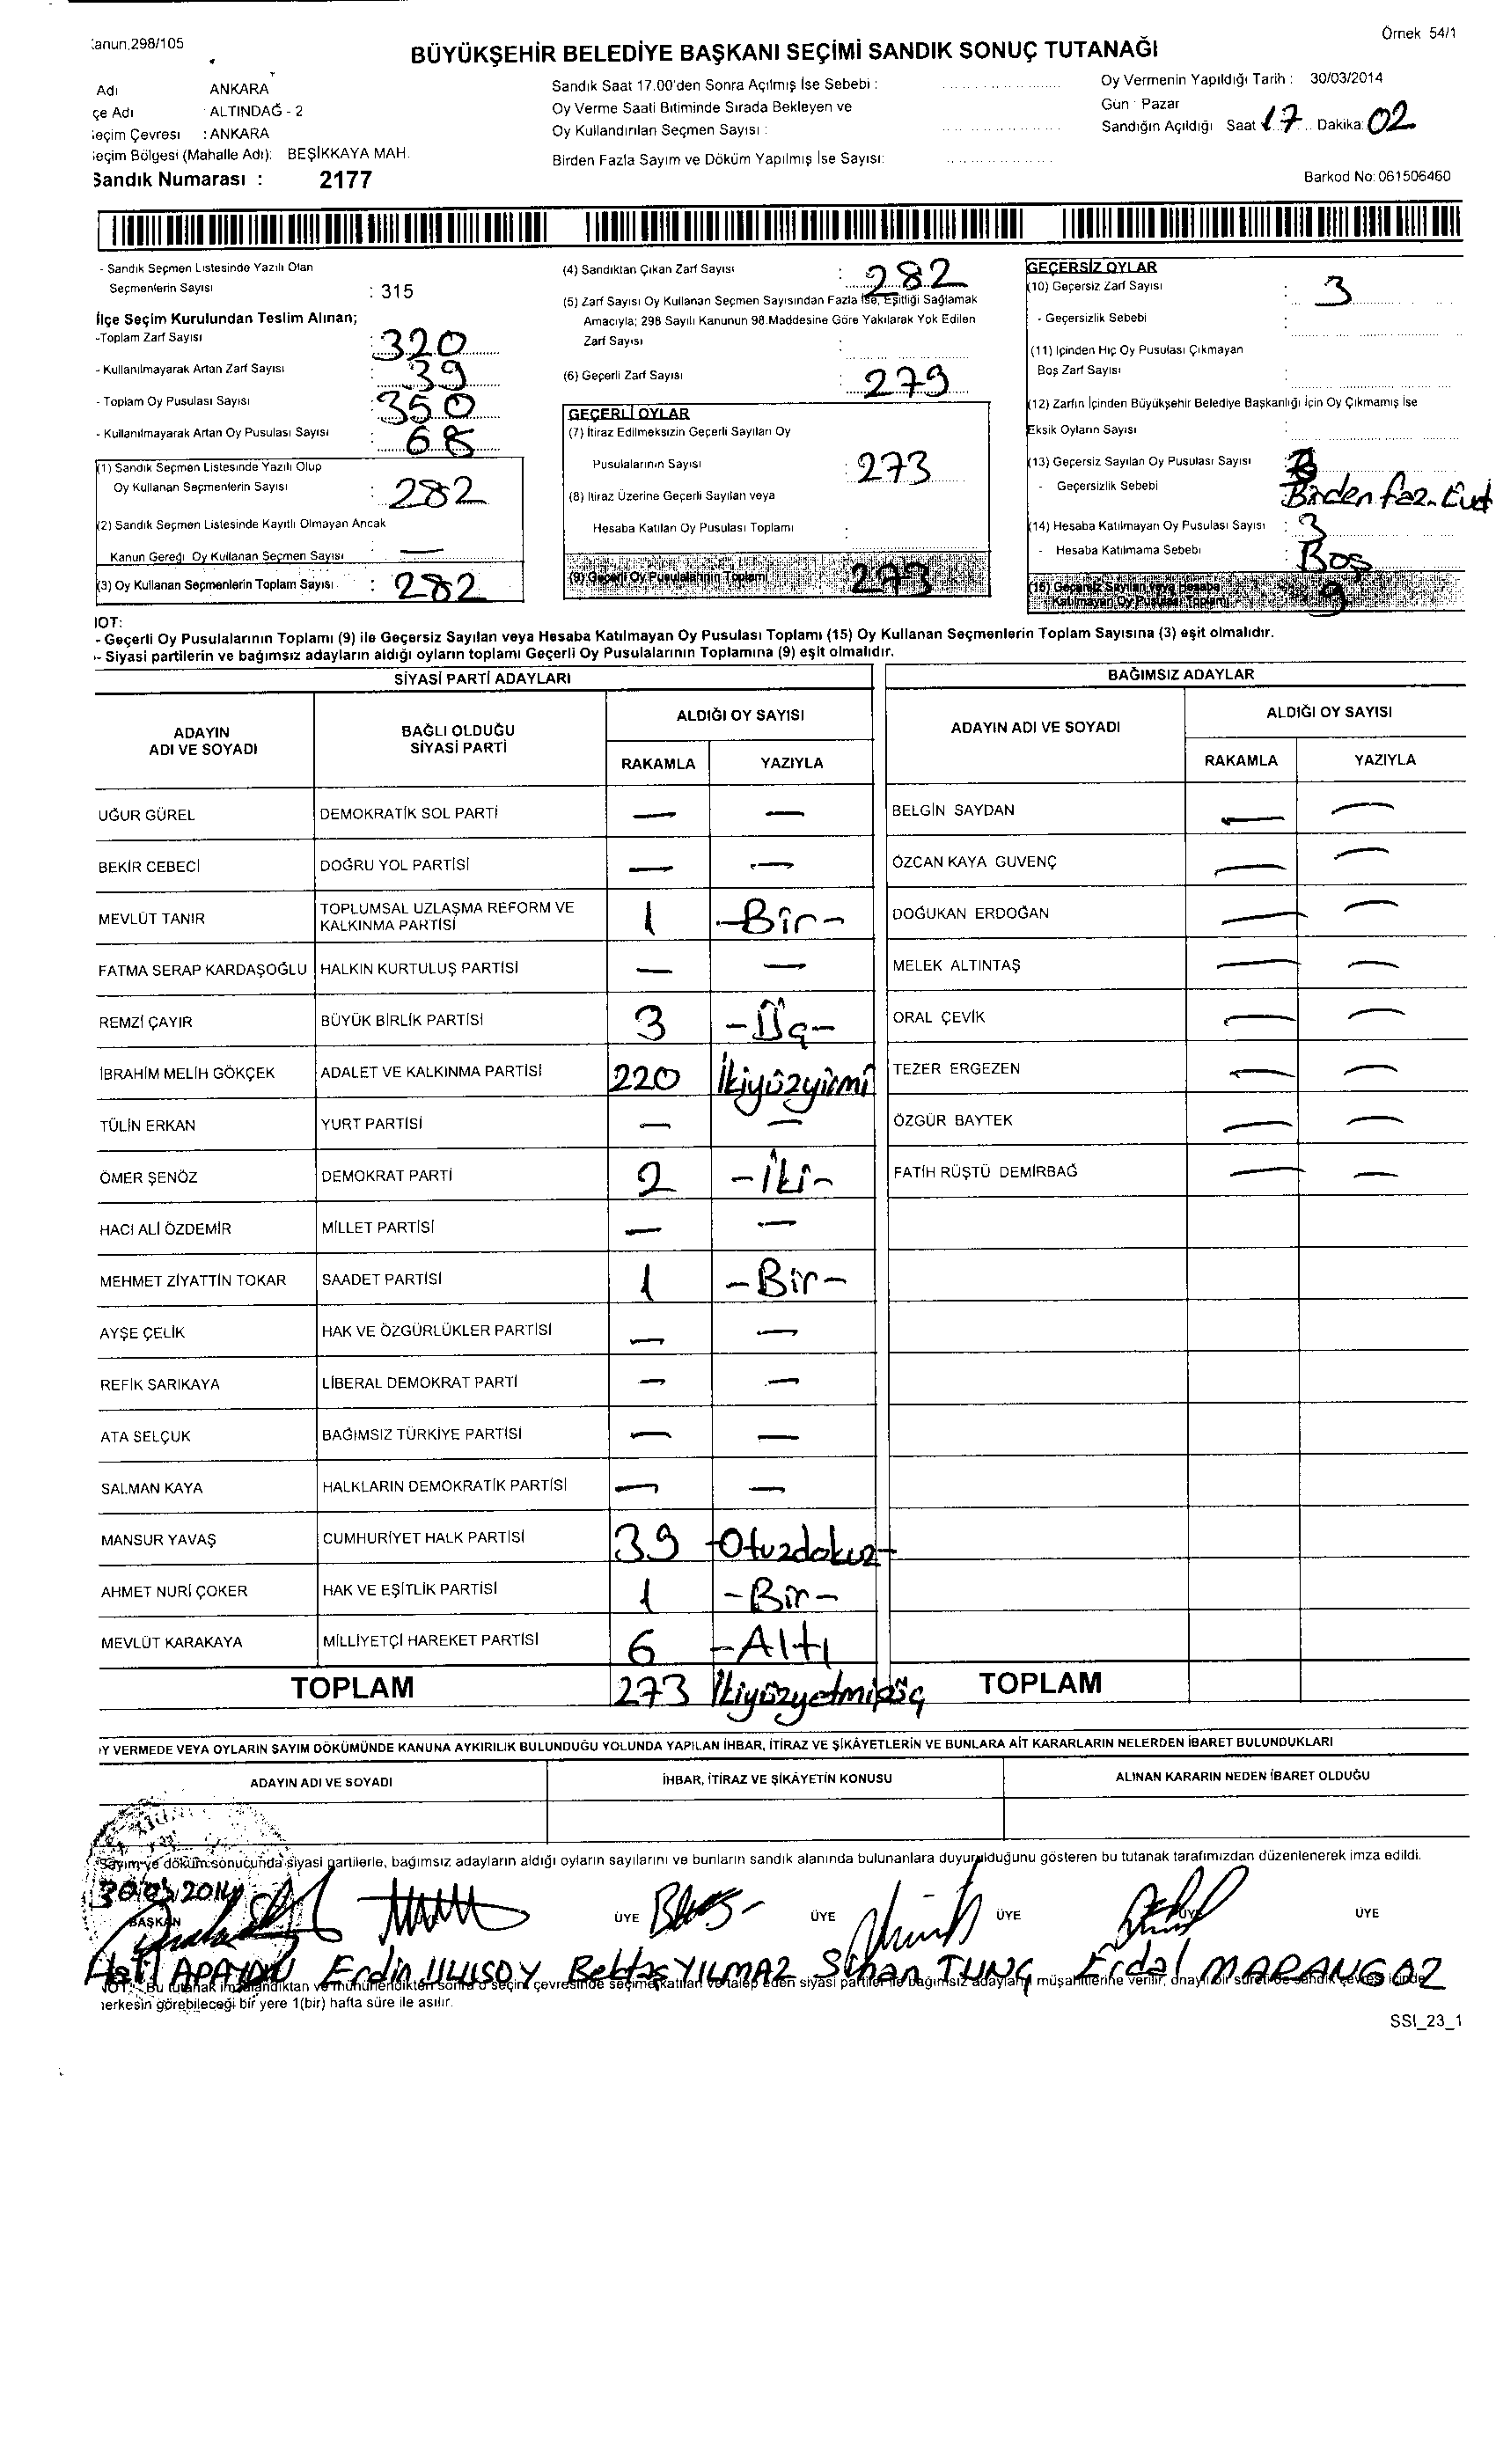 Örnek 54/1
anun.298/105
BÜYÜKŞEHİR BELEDİYE BAŞKANI SEÇİMİ SANDIK SONUÇ TUTANAĞI
Adı ANKARA
çe Adı : ALTINDAĞ - 2
eçim Çevresi : ANKARA
eçim Bölgesi (Mahalle Adı): BEŞİKKAYA MAH.
Sandık Numarası : 2177
Sandık Saat 17.00'den Sonra Açılmış İse Sebebi :
Oy Verme Saati Bitiminde Sırada Bekleyen ve
Oy Kullandırılan Seçmen Sayısı :
Birden Fazla Sayım ve Döküm Yapılmış İse Sayısı:
Oy Vermenin Yapıldığı Tarih : 30/03/2014
Gün : Pazar
Sandığın Açıldığı Saat 17 Dakika: 02
Barkod No: 061506460
- Sandık Seçmen Listesinde Yazılı Olan
Seçmenlerin Sayısı : 315
İlçe Seçim Kurulundan Teslim Alınan;
-Toplam Zarf Sayısı : 320
- Kullanılmayarak Artan Zarf Sayısı : 39
- Toplam Oy Pusulası Sayısı : 350
- Kullanılmayarak Artan Oy Pusulası Sayısı : 68
(1) Sandık Seçmen Listesinde Yazılı Olup
Oy Kullanan Seçmenlerin Sayısı : 282
(2) Sandık Seçmen Listesinde Kayıtlı Olmayan Ancak
Kanun Gereği Oy Kullanan Seçmen Sayısı : —
(3) Oy Kullanan Seçmenlerin Toplam Sayısı : 282
(4) Sandıktan Çıkan Zarf Sayısı : 282
(5) Zarf Sayısı Oy Kullanan Seçmen Sayısından Fazla İse, Eşitliği Sağlamak
Amacıyla; 298 Sayılı Kanunun 98.Maddesine Göre Yakılarak Yok Edilen
Zarf Sayısı :
(6) Geçerli Zarf Sayısı : 279
GEÇERLİ OYLAR
(7) İtiraz Edilmeksizin Geçerli Sayılan Oy
Pusulalarının Sayısı : 273
(8) İtiraz Üzerine Geçerli Sayılan veya
Hesaba Katılan Oy Pusulası Toplamı :
(9) Geçerli Oy Pusulalarının Toplamı 273
GEÇERSİZ OYLAR
(10) Geçersiz Zarf Sayısı : 3
- Geçersizlik Sebebi :
(11) İçinden Hiç Oy Pusulası Çıkmayan
Boş Zarf Sayısı :
(12) Zarfın İçinden Büyükşehir Belediye Başkanlığı İçin Oy Çıkmamış İse
Eksik Oyların Sayısı :
(13) Geçersiz Sayılan Oy Pusulası Sayısı :
- Geçersizlik Sebebi
(14) Hesaba Katılmayan Oy Pusulası Sayısı : 3
- Hesaba Katılmama Sebebi : Boş
(15) Geçersiz Sayılan veya Hesaba
Katılmayan Oy Pusulası Toplamı 9
NOT:
- Geçerli Oy Pusulalarının Toplamı (9) ile Geçersiz Sayılan veya Hesaba Katılmayan Oy Pusulası Toplamı (15) Oy Kullanan Seçmenlerin Toplam Sayısına (3) eşit olmalıdır.
- Siyasi partilerin ve bağımsız adayların aldığı oyların toplamı Geçerli Oy Pusulalarının Toplamına (9) eşit olmalıdır.
SİYASİ PARTİ ADAYLARI
ADAYIN ADI VE SOYADI BAĞLI OLDUĞU SİYASİ PARTİ ALDIĞI OY SAYISI
RAKAMLA YAZIYLA
UĞUR GÜREL DEMOKRATİK SOL PARTİ — —
BEKİR CEBECİ DOĞRU YOL PARTİSİ — —
MEVLÜT TANIR TOPLUMSAL UZLAŞMA REFORM VE KALKINMA PARTİSİ 1 -Bir-
FATMA SERAP KARDAŞOĞLU HALKIN KURTULUŞ PARTİSİ — —
REMZİ ÇAYIR BÜYÜK BİRLİK PARTİSİ 3 -Üç-
İBRAHİM MELİH GÖKÇEK ADALET VE KALKINMA PARTİSİ 220 İkiyüzyirmi
TÜLİN ERKAN YURT PARTİSİ — —
ÖMER ŞENÖZ DEMOKRAT PARTİ 2 -İki-
HACI ALİ ÖZDEMİR MİLLET PARTİSİ — —
MEHMET ZİYATTİN TOKAR SAADET PARTİSİ 1 -Bir-
AYŞE ÇELİK HAK VE ÖZGÜRLÜKLER PARTİSİ — —
REFİK SARIKAYA LİBERAL DEMOKRAT PARTİ — —
ATA SELÇUK BAĞIMSIZ TÜRKİYE PARTİSİ — —
SALMAN KAYA HALKLARIN DEMOKRATİK PARTİSİ — —
MANSUR YAVAŞ CUMHURİYET HALK PARTİSİ 39 -Otuzdokuz-
AHMET NURİ ÇOKER HAK VE EŞİTLİK PARTİSİ 1 -Bir-
MEVLÜT KARAKAYA MİLLİYETÇİ HAREKET PARTİSİ 6 -Altı
TOPLAM 273 İkiyüzyetmişüç
BAĞIMSIZ ADAYLAR
ADAYIN ADI VE SOYADI ALDIĞI OY SAYISI
RAKAMLA YAZIYLA
BELGİN SAYDAN — —
ÖZCAN KAYA GÜVENÇ — —
DOĞUKAN ERDOĞAN — —
MELEK ALTINTAŞ — —
ORAL ÇEVİK — —
TEZER ERGEZEN — —
ÖZGÜR BAYTEK — —
FATİH RÜŞTÜ DEMİRBAĞ — —
TOPLAM
Y VERMEDE VEYA OYLARIN SAYIM DÖKÜMÜNDE KANUNA AYKIRILIK BULUNDUĞU YOLUNDA YAPILAN İHBAR, İTİRAZ VE ŞİKÂYETLERİN VE BUNLARA AİT KARARLARIN NELERDEN İBARET BULUNDUKLARI
ADAYIN ADI VE SOYADI İHBAR, İTİRAZ VE ŞİKÂYETİN KONUSU ALINAN KARARIN NEDEN İBARET OLDUĞU
Sayım ve döküm sonucunda siyasi partilerle, bağımsız adayların aldığı oyların sayılarını ve bunların sandık alanında bulunanlara duyurulduğunu gösteren bu tutanak tarafımızdan düzenlenerek imza edildi.
30/03/2014
BAŞKAN ÜYE ÜYE ÜYE ÜYE ÜYE
Erdin ULUSOY Bektaş YILMAZ TUNÇ Erdal MARANGOZ
NOT: Bu tutanak imzalandıktan ve mühürlendikten sonra o seçim çevresinde seçime katılan ve talep eden siyasi partiler ile bağımsız adayların müşahitlerine verilir, onaylı bir sureti de sandık çevresi içinde
herkesin görebileceği bir yere 1(bir) hafta süre ile asılır.
SSI_23_1